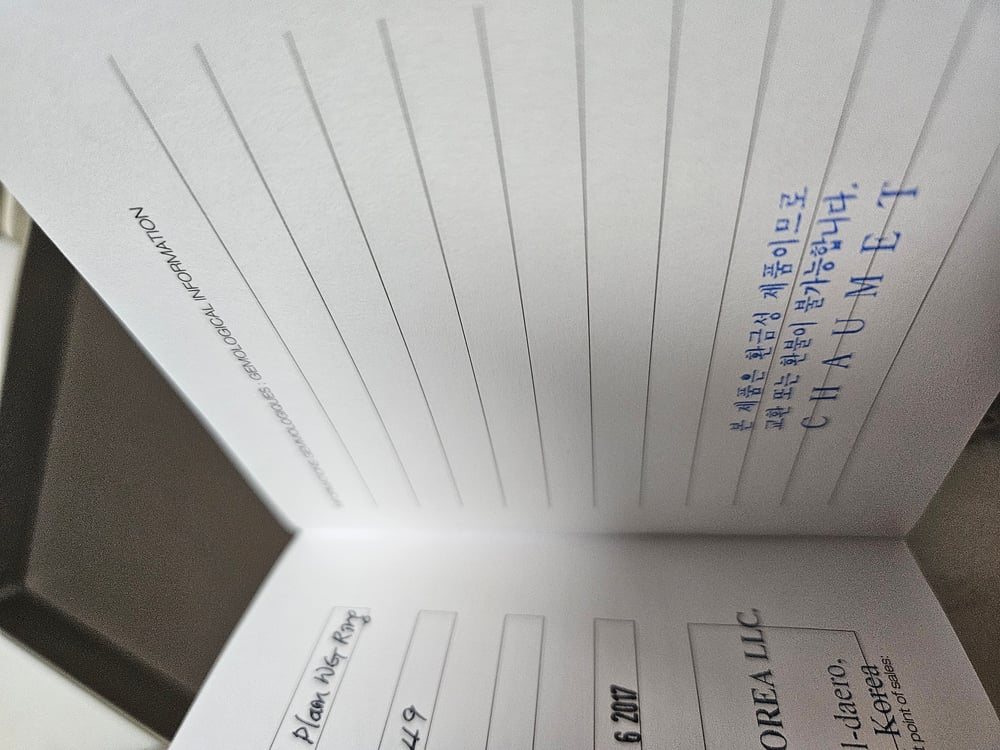 INFORMATIONS GEMMOLOGIQUES : GEMOLOGICAL INFORMATION
본 제품은 환금성 제품이므로
교환 또는 환불이 불가능합니다.
CHAUMET
Plain WG Ring
49
6 2017
OREA LLC.
l-daero,
Korea
point of sales: